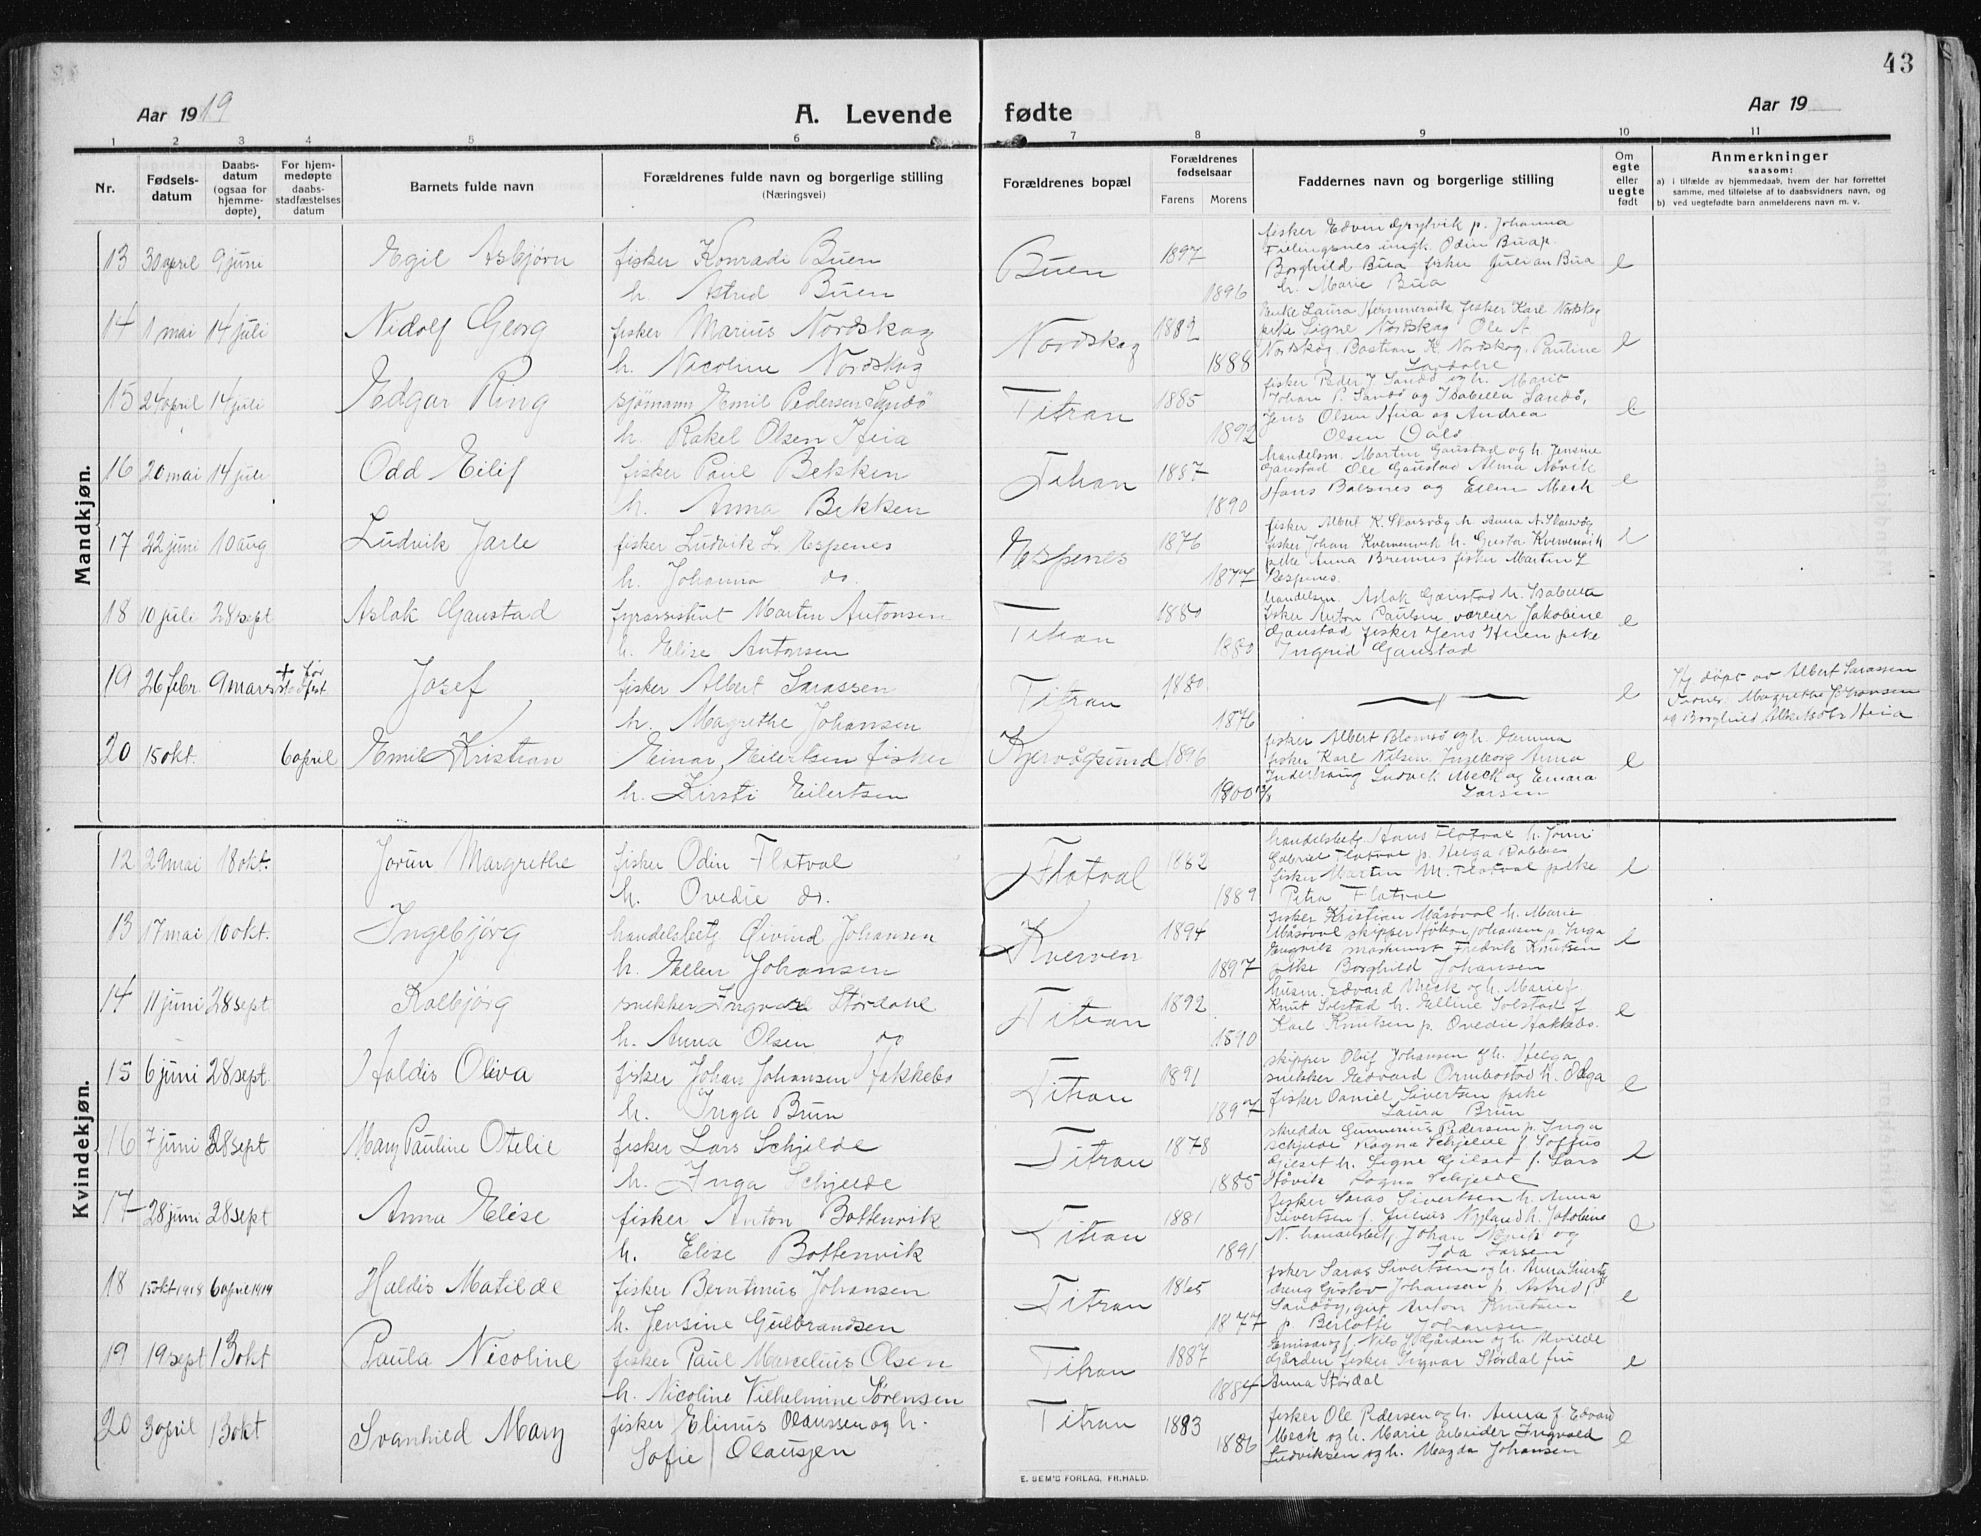 43
Aar 1919
A. Levende fødte
Aar 19
1 2 3 4 5 6 7 8 9 10 11
Nr.
Fødsels-
datum
Daabs-
datum
(ogsaa for
hjemme-
døpte)
For hjem-
medøpte
daabs-
stadfæstelses
datum
Barnets fulde navn
Forældrenes fulde navn og borgerlige stilling
(Næringsvei)
Forældrenes bopæl
Forældrenes
fødselsaar
Farens Morens
Faddernes navn og borgerlige stilling
Om
egte
eller
uegte
født
Anmerkninger
saasom:
a) i tilfælde av hjemmedaab, hvem der har forrettet
samme, med tilføielse af to daabsvidners navn, og
b) ved uegtefødte barn anmelderens navn m. v.
Mandkjøn.
13 30 april 9 juni Egil Asbjørn fisker Konrad Buen
h. Astrid Buen
Buen 1897 1896
fisker Edvin p. Johanna
ungk. Odin Bua p.
Borghild Bua fisker Julian Bua
h. Marie Bua
e
14 1 mai 14 juli Nidolf Georg fisker Marius Nordskag
h. Nicoline Nordskag
Nordskag 1882 1888
Enke Laura Hemmervik fisker Karl Nordskag
pike Signe Nordskag Ole A
Nordskag, Bastian K. Nordskag, Pauline
e
15 24 april 14 juli Edgar Ring sjømann Emil Pedersen Sandø
h. Rakel Olsen Heia
Titran 1885 1892
fisker Peder J. Sandø og h. Marit
Johan P. Sandø og Isabella Sandø,
Jens Olsen Heia og Andrea
Olsen
e
16 20 mai 14 juli Odd Eilif fisker Paul Bekken
h. Anna Bekken
Titran 1887 1890
handelsm. Martin Gaustad og h. Jensine
Gaustad Ole Gaustad Alma Nøvik
Hans Balsnes og Ellen Meck
e
17 22 juni 10 aug Ludvik Jarle fisker Ludvik L. Espenes
h. Johanna do.
Espenes 1876 1877
fisker Albert K. Skarsvåg h. Anna A. Skarsvåg
fisker Johan Kvervenvik h. Gusta Kvervenvik
pike Anna Bremnes fisker Martin L
Espenes.
e
18 10 juli 28 sept Aslak Gaustad fyrassistent Martin Antonsen
h. Elise Antonsen
Titran 1880 1880
handelsm. Aslak Gaustad h. Isabella
fisker Anton Paulsen væreier Jakobine
Gaustad fisker Jens Heien pike
Ingrid Gaustad
e
19 26 febr. 9 mars + før stadfest. Josef fisker Albert Larassen
h. Magrethe Johansen
Titran 1880 1876
e
Hj døpt av Albert Larassen
Magrethe Johansen
og Borghild Heia
20 15 okt. 6 april Emil Kristian Einar Eilertsen fisker
h. Kirsti Eilertsen
Kjervågsund 1896 1900
fisker Albert Blomsø og h. Gemma
fisker Karl Nilsen, Ingeborg Anna
Inderhaug Ludvik Meck og Emara
Larsen
e
Kvindekjøn.
12 29 mai 18 okt. Jorun Margrethe fisker Odin Flatval
h. Ovedie do.
Flatval 1882 1889
handelsbetj. Hans Flatval h. Jonni
Gabriel Flatval p. Helga
fisker Martin M. Flatval pike
Petra Flatval
e
13 17 mai 10 okt. Ingebjørg handelsbetj Øivind Johansen
h. Ellen Johansen
Kverven 1894 1897
fisker Kristian Måsøval h. Marie
Måsøval skipper Johan Johansen p. Inga
Engvik maskinist Fredrik Knutsen
pike Borghild Johansen
e
14 11 juni 28 sept. Kolbjørg snekker Ingvar Størdahl
h. Anna Olsen do
Titran 1892 1890
husm. Edvard Meck og h. Marie f.
Knut Solstad h. Elline Solstad f
Karl Knutsen p. Ovedie Hakkebo.
e
15 6 juni 28 sept. Haldis Oliva fisker Johan Johansen Hakkebo
h. Inga Brun
Titran 1891 1897
skipper Oluf Johansen og h. Helga
snekker Edvard Ormbostad h. Olga
fisker Daniel Sivertsen pike
Laura Brun
e
16 7 juni 28 sept Mary Pauline Otelie fisker Lars Schjelde
h. Inga Schjelde
Titran 1878 1885
skredder Gunnerius Pedersen p. Inga
Schjelde Ragna Schjelde f. Soffus
Gilset h. Signe Gilset f. Lars
Støvik Ragna Schjelde
e
17 28 juni 28 sept Anna Elise fisker Anton Bottenvik
h. Elise Bottenvik
Titran 1881 1891
fisker Saras Sivertsen h. Anna
Sivertsen f. Julius Nygland h. Jakobine
N. handelsbetj Johan Nøvik og
Ida Larsen
e
18 15 okt 1918 6 april 1919 Haldis Matilde fisker Berntinus Johansen
h. Jensine Gulbrandsen
Titran 1865 1877
fisker Saras Sivertsen og h. Anna
dreng Gustav Johansen p. Astrid P.
Sandøy, gut Anton Knutsen
p Berlotte Johansen
e
19 19 sept 13 okt Paula Nicoline fisker Paul Marcelius Olsen
h. Nicoline Vilhelmine Sørensen
Titran 1887 1884
f. Nils Gården og h. Alvilde
Gården fisker Ingvar Størdal fru
Anna Størdal
e
20 3 april 13 okt Svanhild Mary fisker Elinus Olaussen og h.
Sofie Olausen
Titran 1883 1886
fisker Ole Pedersen og h. Anna f. Edvard
Meck og h. Marie arbeider Ingvald
Ludviksen og h. Magda Johansen
e
E. SEM'S FORLAG, FR.HALD.